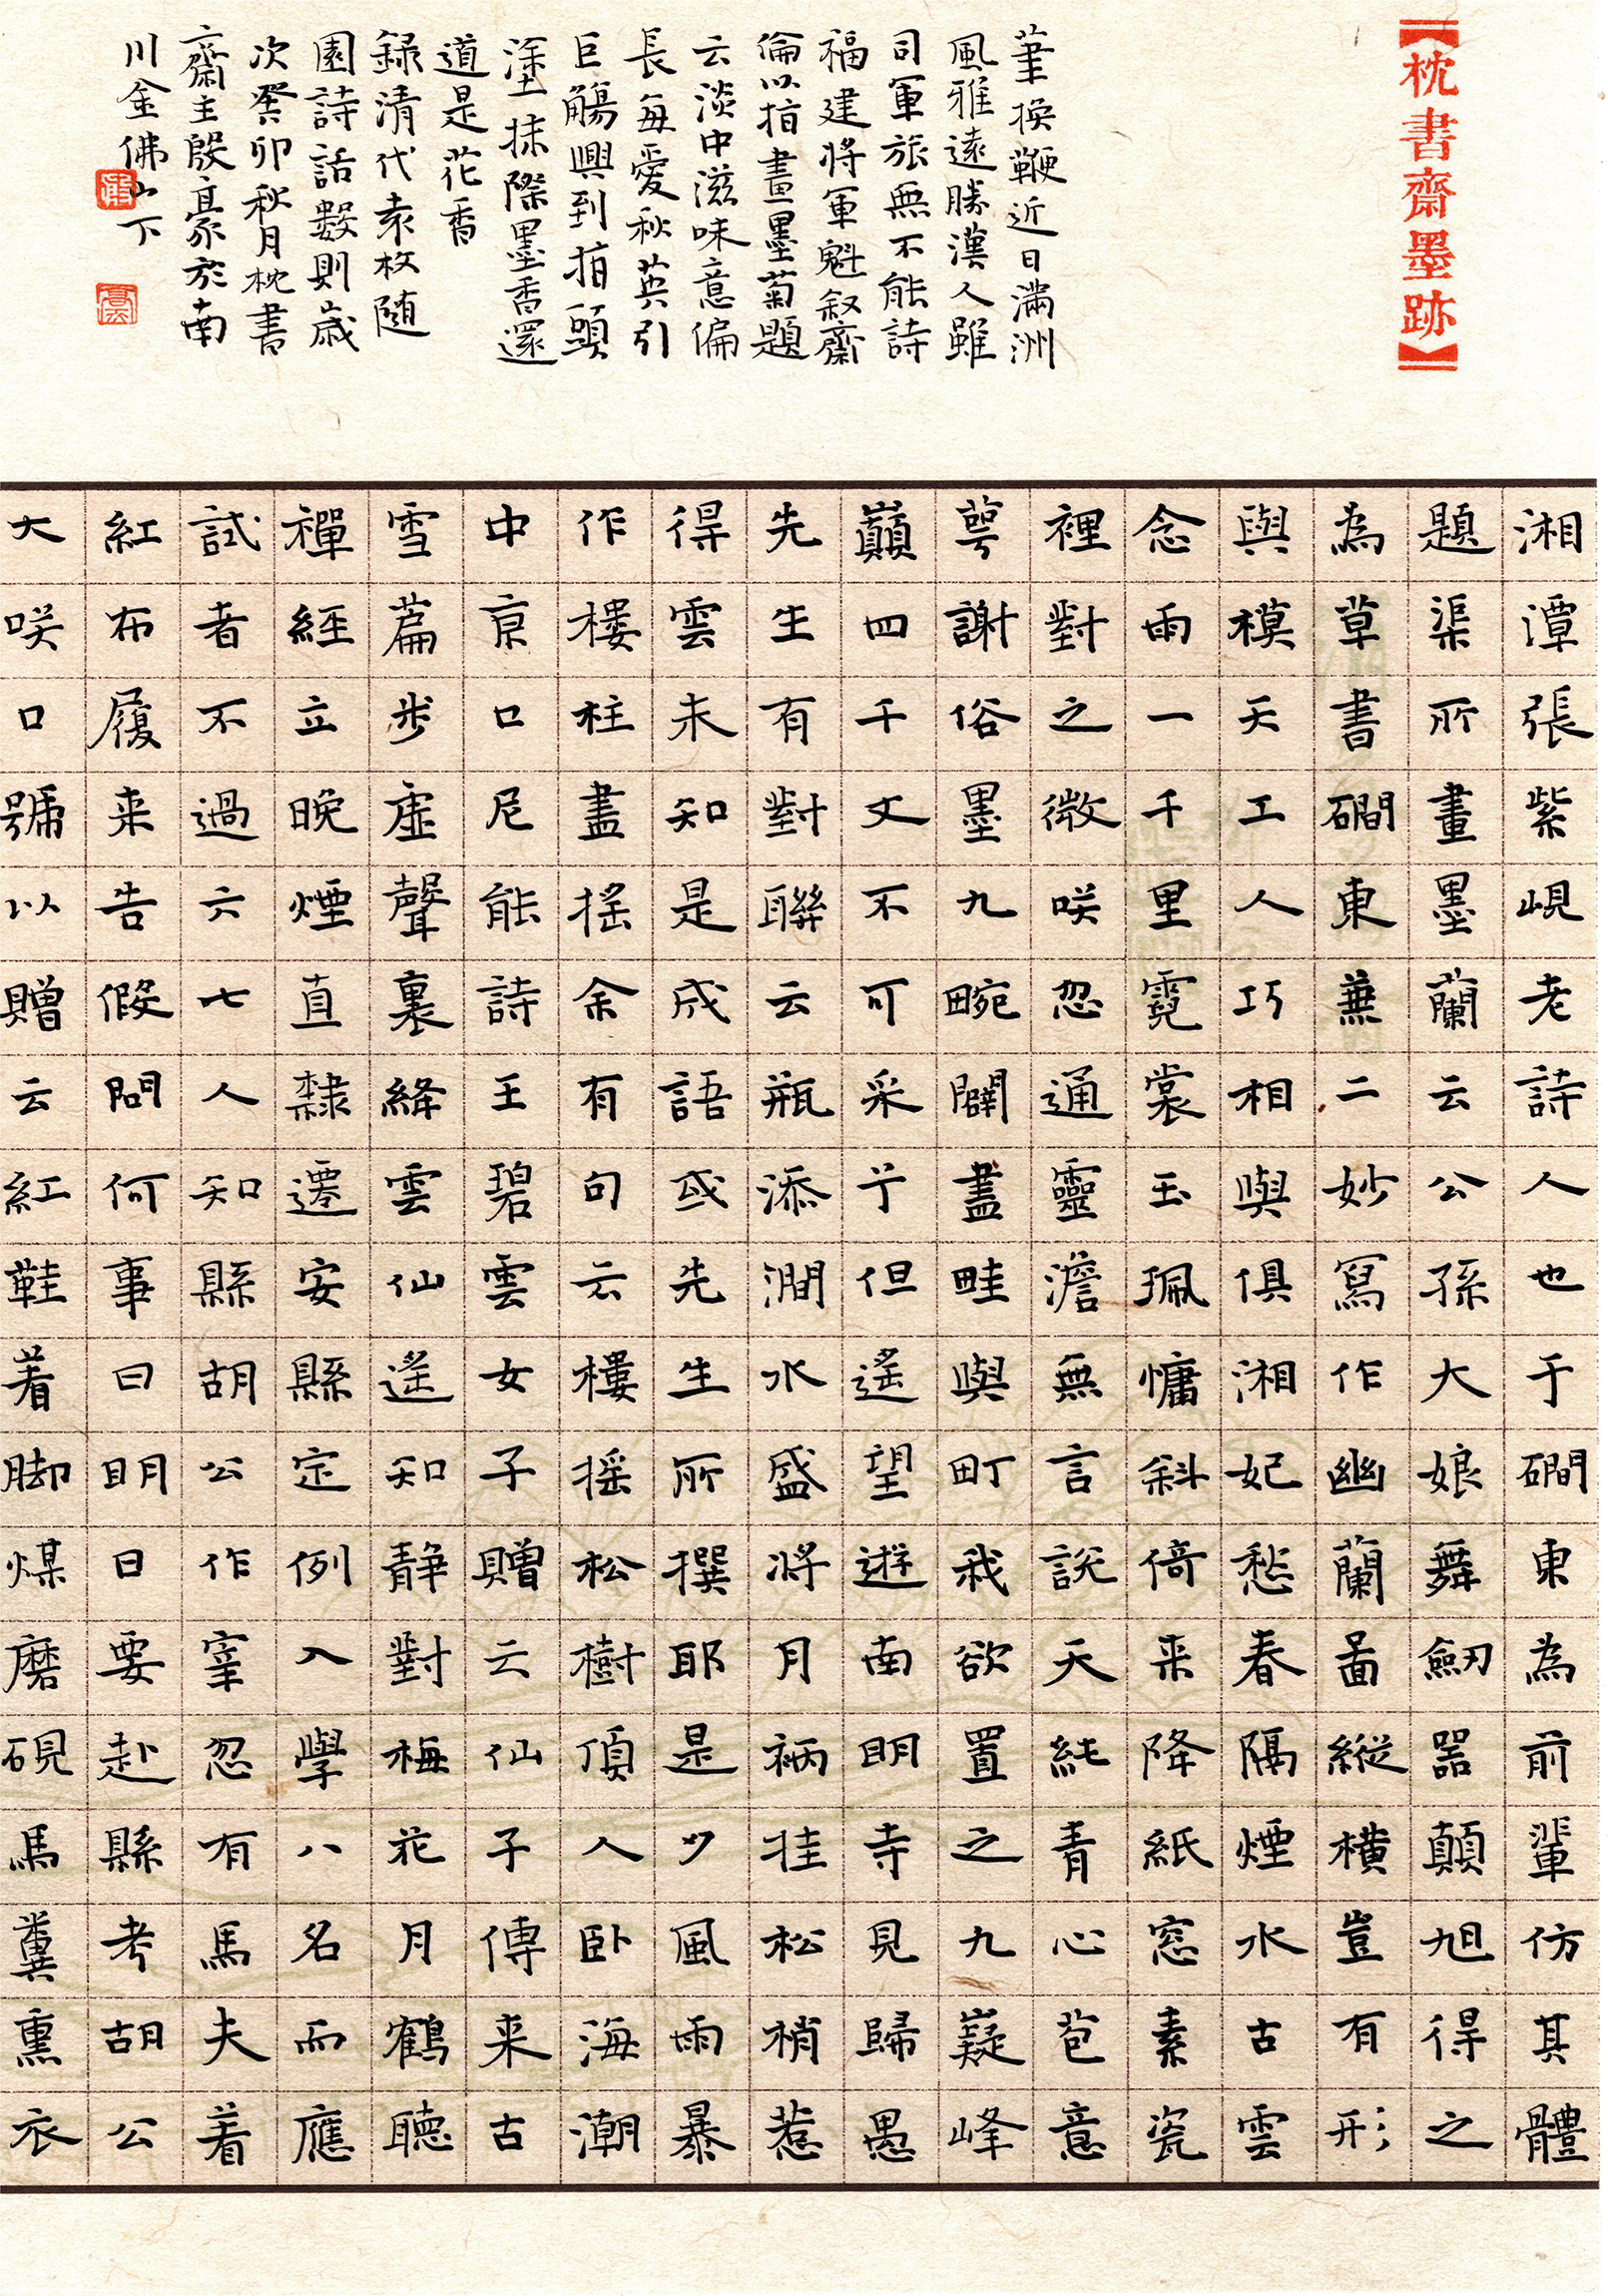 【枕書齋墨跡】
湘潭張紫峴老詩人也于磵東為前輩仿其體
題渠所畫墨蘭云公孫大娘舞劒器顛旭得之
為草書磵東兼二妙寫作幽蘭啚縱横豈有形
與模天工人巧相與俱湘妃愁春隔煙水古雲
念雨一千里霓裳玉珮慵斜倚来降紙窓素瓷
裡對之微咲忽通靈澹無言説天純青心苞意
萼謝俗墨九畹闢盡畦與町我欲置之九嶷峰
巔四千丈不可采兮但遙望遊南明寺見歸愚
先生有對聯云瓶添澗水盛將月衲挂松梢惹
得雲未知是成語或先生所撰耶是夕風雨暴
作樓柱盡搖余有句云樓搖松樹頂人卧海潮
中京口尼能詩王碧雲女子贈云仙子傳来古
雪篇步虚聲裏絳雲仙遙知靜對梅花月鶴聽
禪經立晚煙直隸遷安縣定例入學八名而應
試者不過六七人知縣胡公作宰忽有馬夫着
紅布履来告假問何事曰明日要赴縣考胡公
大咲口號以贈云紅鞋着脚煤磨硯馬糞熏衣
筆換鞭近日滿洲
風雅遠勝漢人雖
司軍旅無不能詩
福建將軍魁叙齋
倫以指畫墨菊題
云淡中滋味意偏
長每愛秋英引
巨觴興到指頭
塗抹際墨香還
道是花香
録清代袁枚随
園詩話數則歲
次癸卯秋月枕書
齋主殷豪於南
川金佛山下